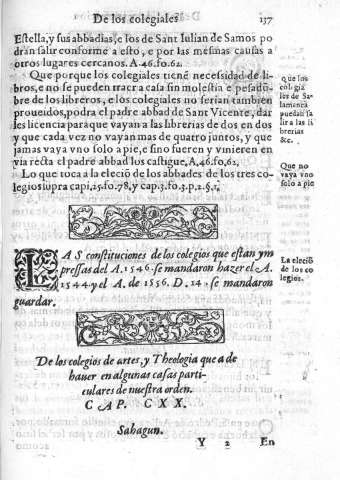 De los colegiales 137
Estella, y sus abbadias, e los de Sant Iulian de Samos po
dran salir conforme a esto, e por las mesmas causas a
otros lugares cercanos. A.46.fo.62.
Que porque los colegiales tienē necessidad de li-
bros, e no se pueden traer a casa sin molestia e pesadū-
bre de los libreros, e los colegiales no serian tambien
proueidos, podra el padre abbad de Sant Vicente, dar
les licencia para que vayan a las librerias de dos en dos
y que cada vez no vayan mas de quatro juntos, y que
jamas vaya vno solo a pie, e sino fueren y vinieren en
via recta el padre abbad los castigue. A.46.fo.62.
Lo que toca a la eleciō de los abbades de los tres co-
legios supra capi.25.fo.78. y cap.3.fo.3.p.2.§.1.
que los
colegia
les de Sa-
lamanca
puedan sa
lir a las li
brerias
&c.
Que no
vaya vno
solo a pie
LAS constituciones de los colegios que estan ym
pressas del A. 1546. se mandaron hazer el A.
1544 y el A. de 1556. D. 14. se mandaron
guardar.
La eleciō
de los co
legios.
De los colegios de artes, y Theologia que a de
hauer en algunas casas parti-
culares de nuestra orden.
CAP. CXX.
Sahagun.
Y 2 En